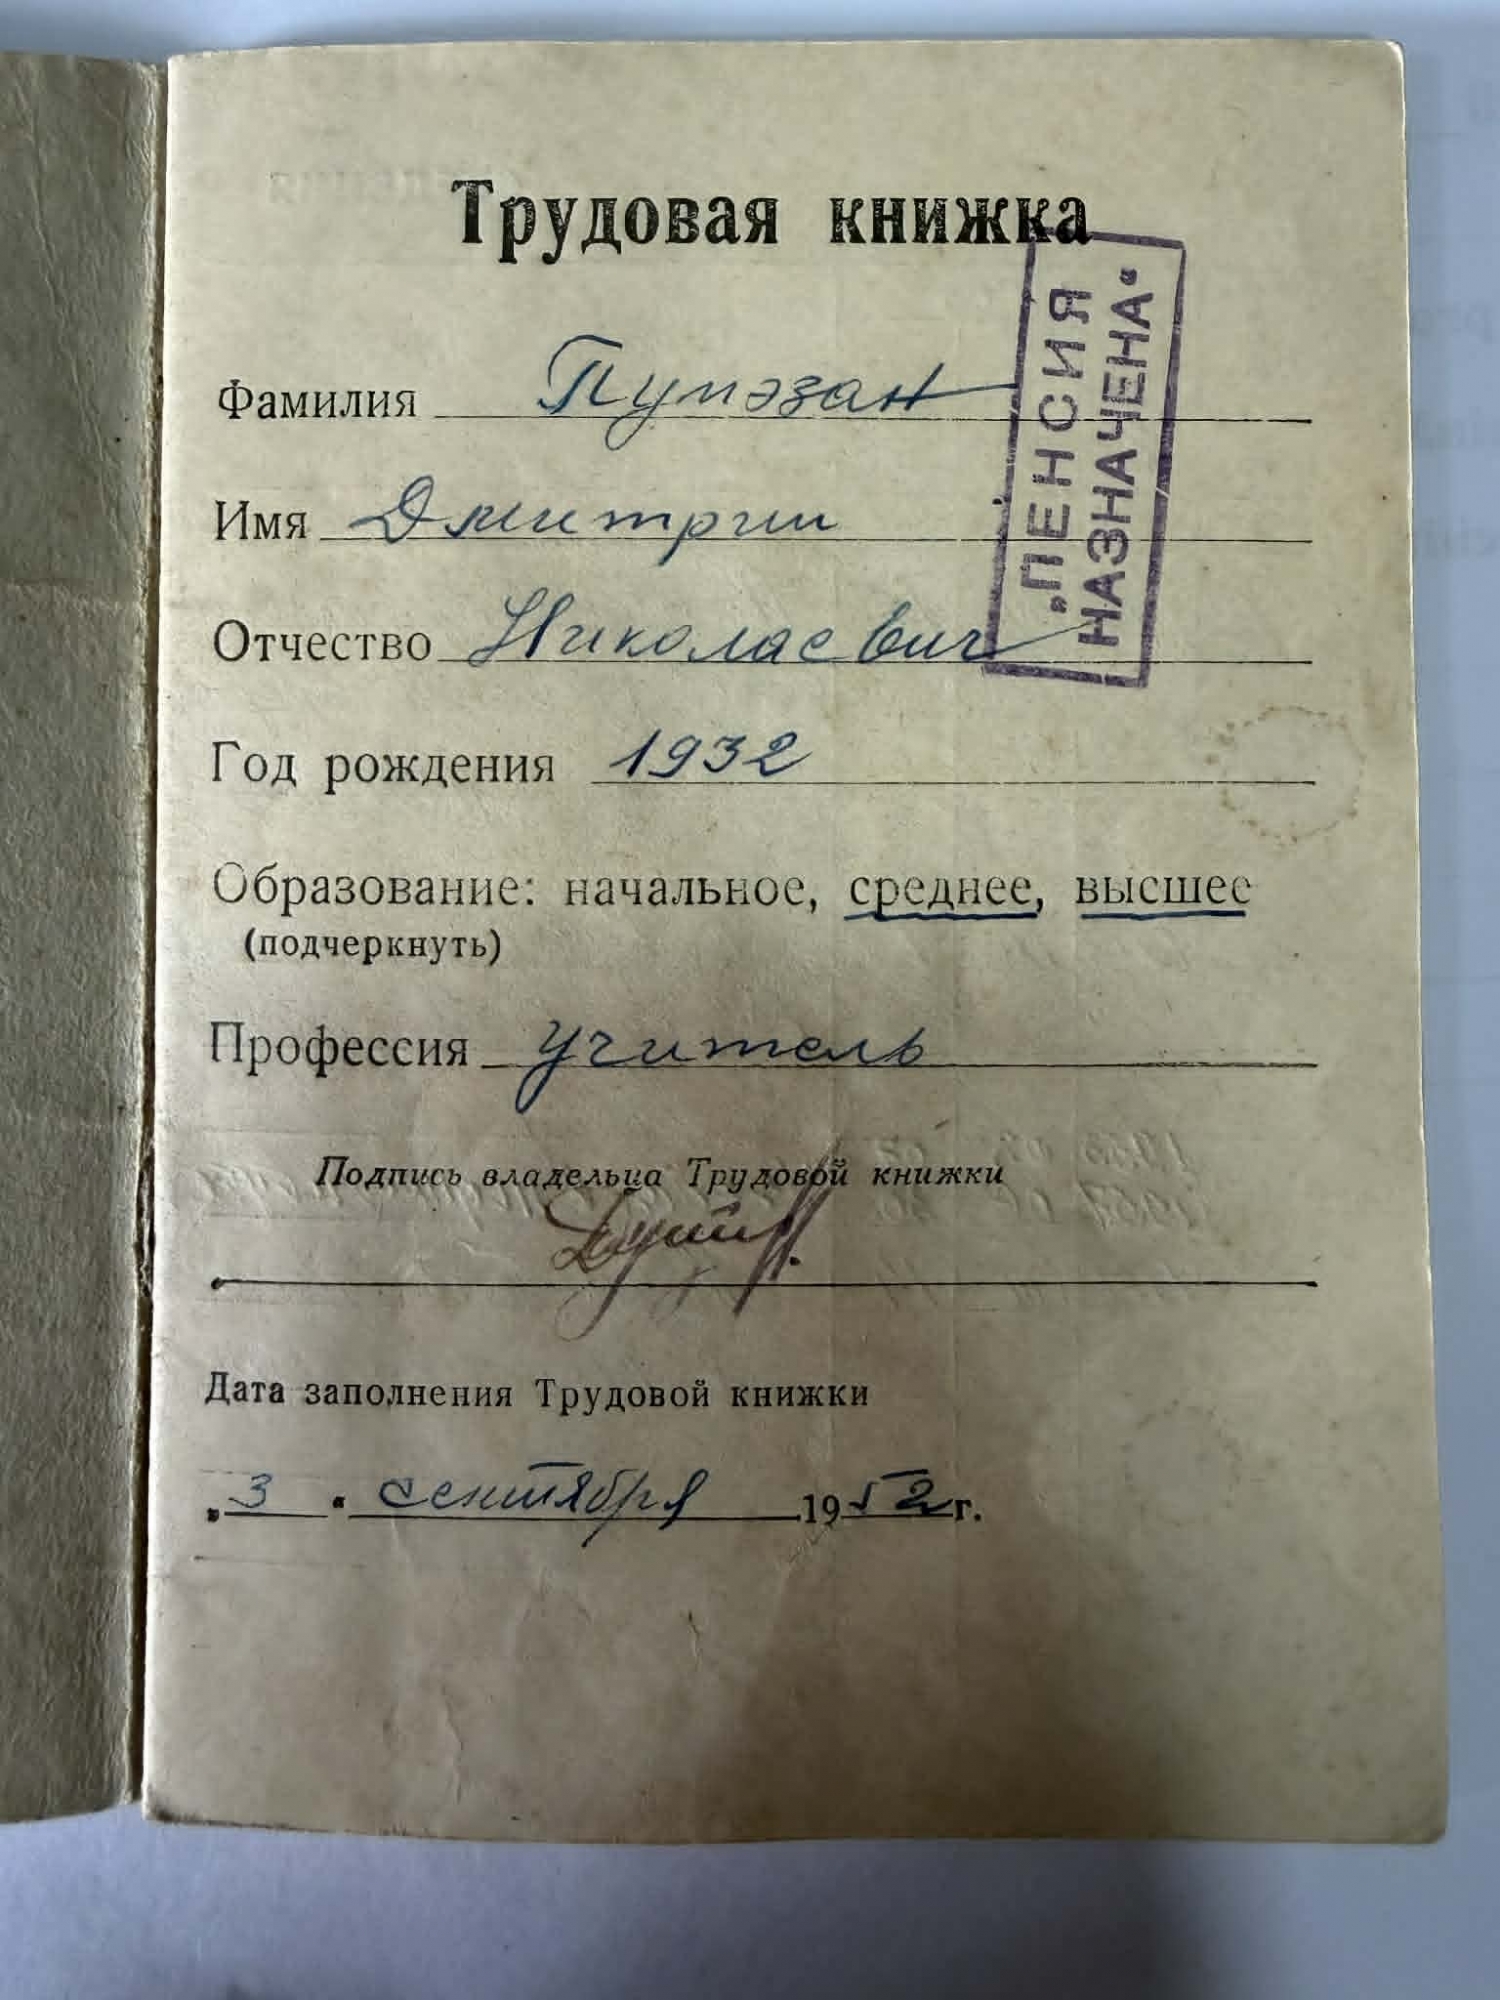 Трудовая книжка
„ПЕНСИЯ
НАЗНАЧЕНА“
Фамилия Пумэзан
Имя Дмитрии
Отчество Николаевич
Год рождения 1932
Образование: начальное, среднее, высшее
(подчеркнуть)
Профессия учитель
Подпись владельца Трудовой книжки
Дата заполнения Трудовой книжки
„3“ сентября 1952 г.